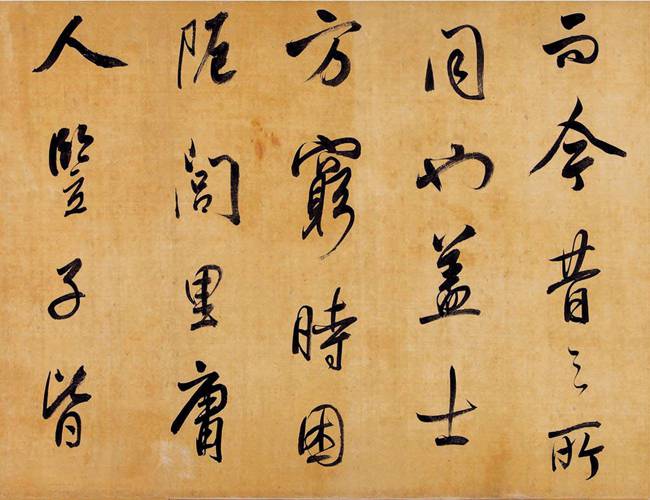 而今昔之所
同也盖士
方窮時困
阨閭里庸
人竪子皆